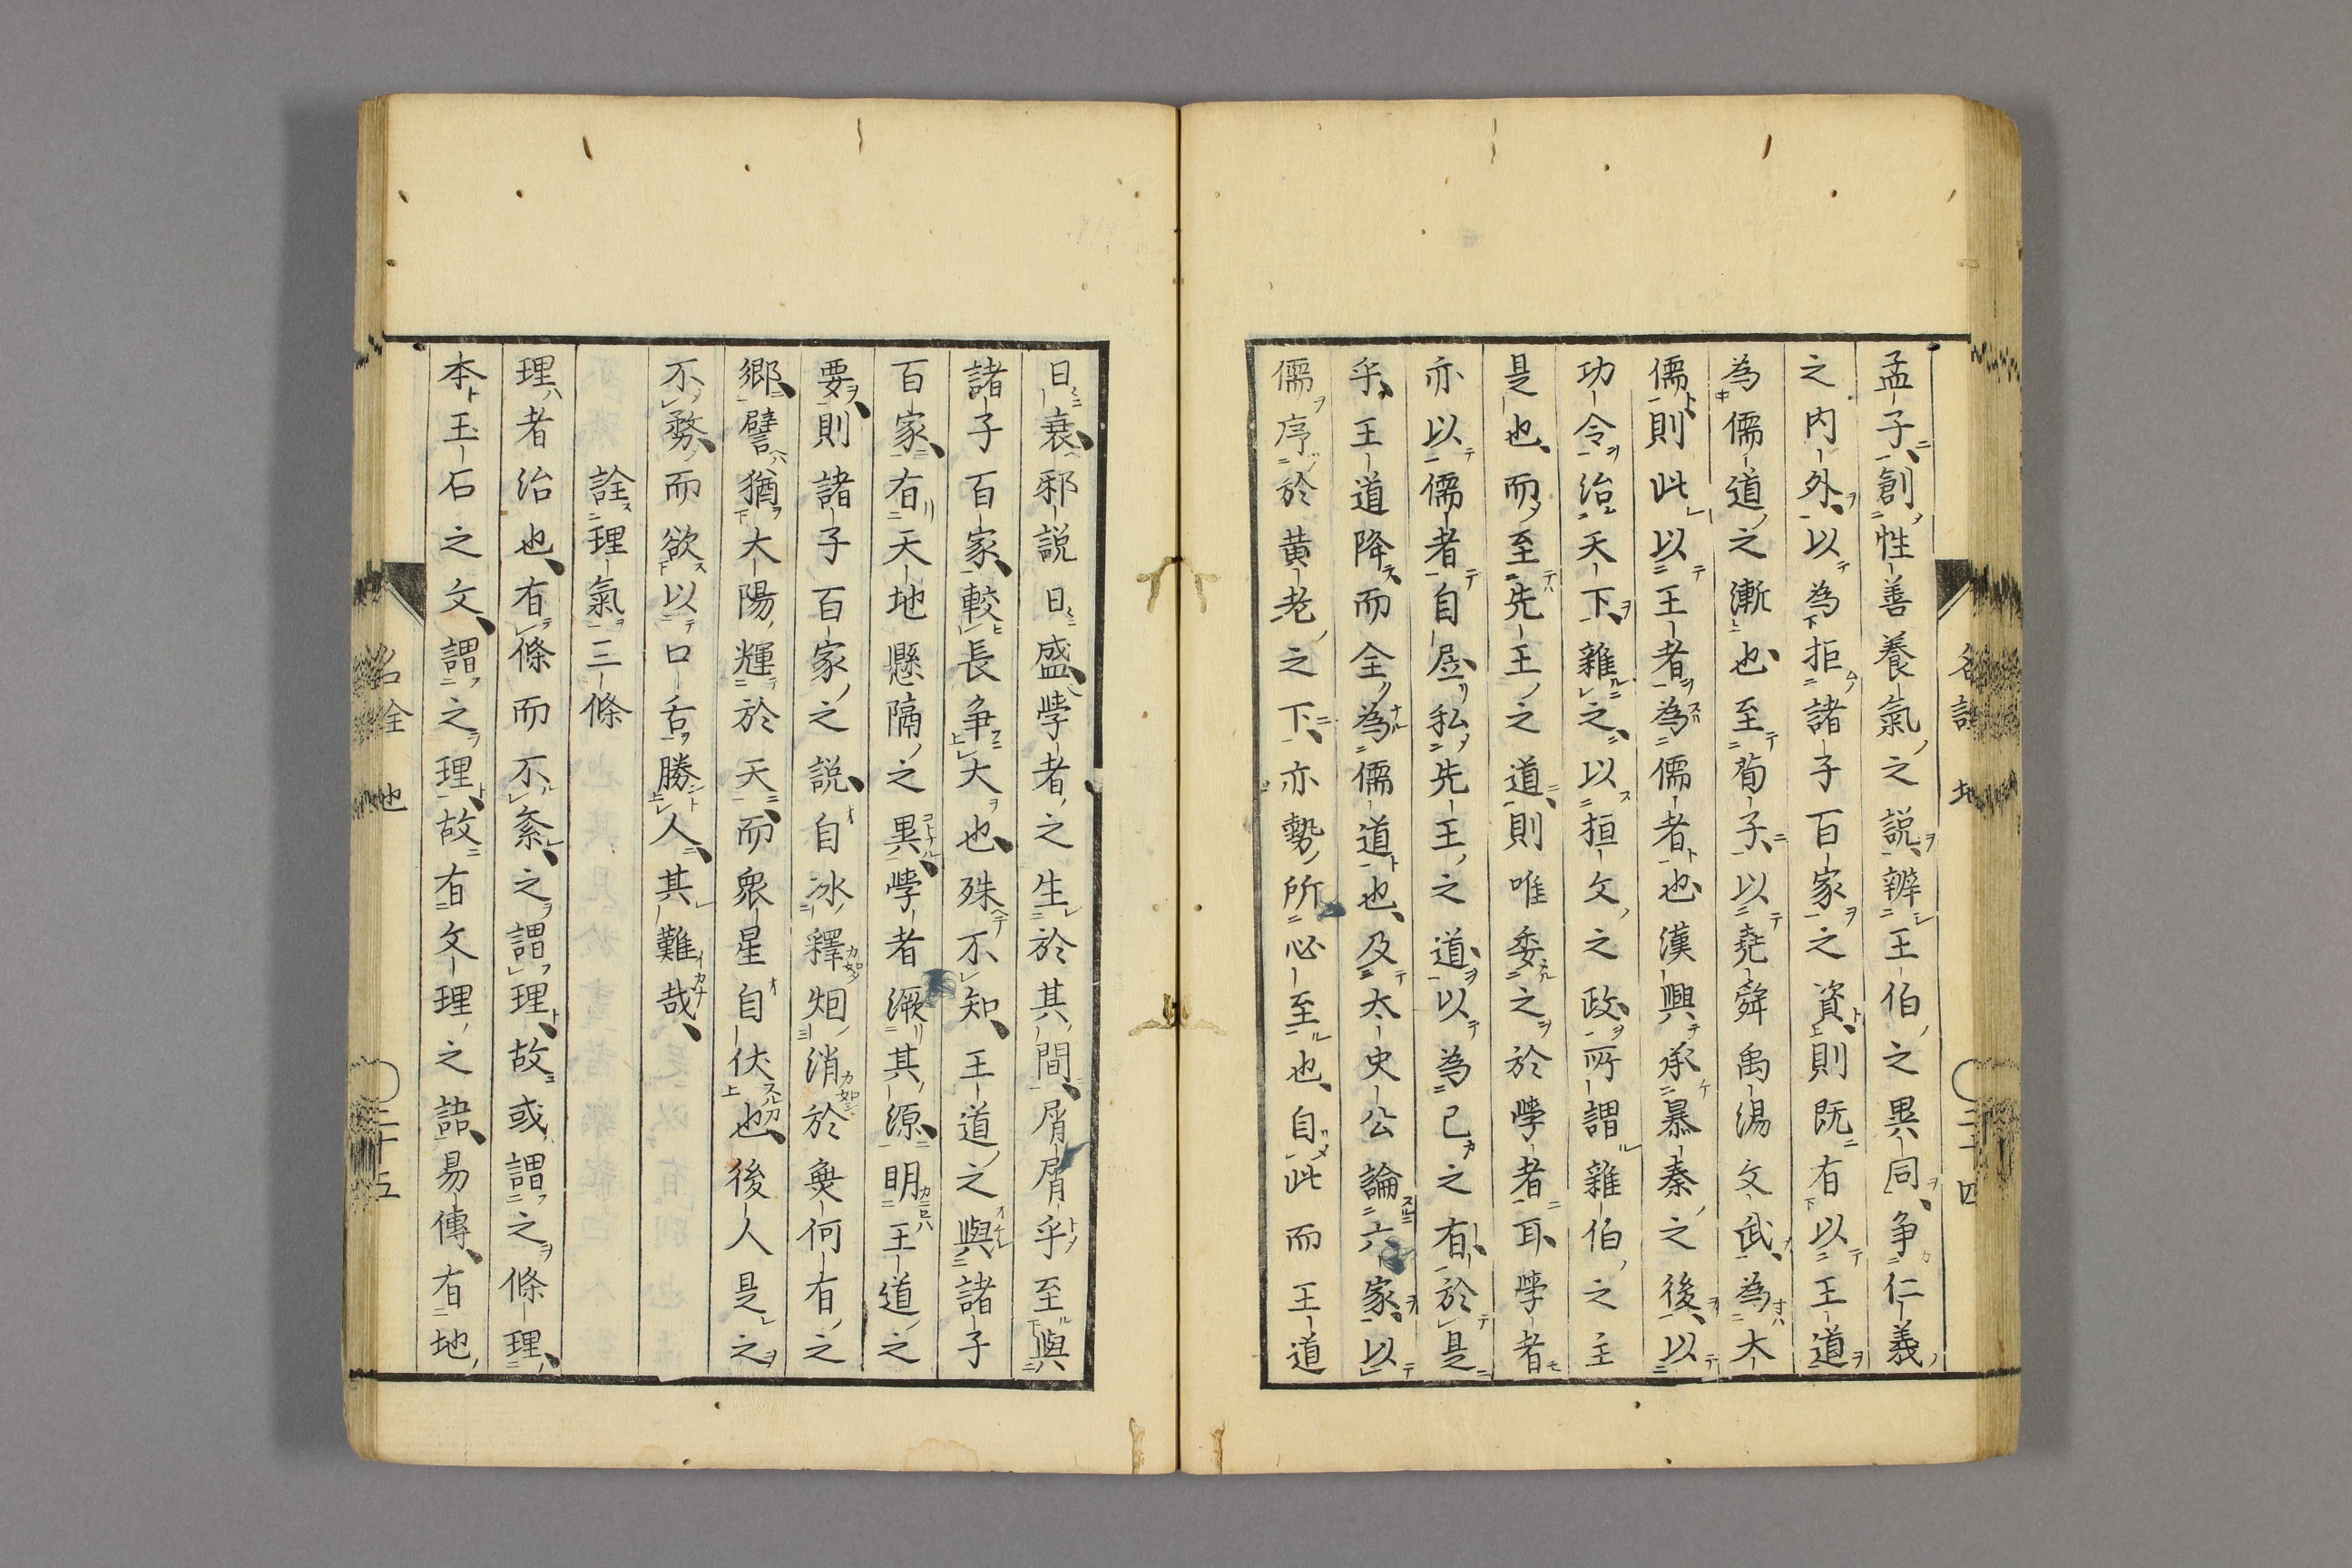 孟子創性善養氣之説辨王伯之異同争仁義
之内外以為拒諸子百家之資則既有以王道
為儒道之漸也至荀子以堯舜禹湯文武為大
儒則此以王者為儒者也漢興承暴秦之後以
功令治天下雜之以桓文之政所謂雜伯之主
是也而至先王之道則唯委之於學者耳學者
亦以儒者自居私先王之道以為己之有於是
乎王道降而全為儒道也及太史公論六家以
儒序於黄老之下亦勢所必至也自此而王道
日衰邪説日盛學者之生於其間屑屑乎至與
諸子百家較長争大也殊不知王道之與諸子
百家有天地懸隔之異學者溯其源明王道之
要則諸子百家之説自冰釋烟消於奥何有之
郷譬猶大陽輝於天而衆星自伏也後人是之
不務而欲以口舌勝人其難哉
詮理氣三條
理者治也有條而不紊之謂理故或謂之條理
本玉石之文謂之理故有文理之語易傳有地
名詮 地
二十四
名詮 地
二十五